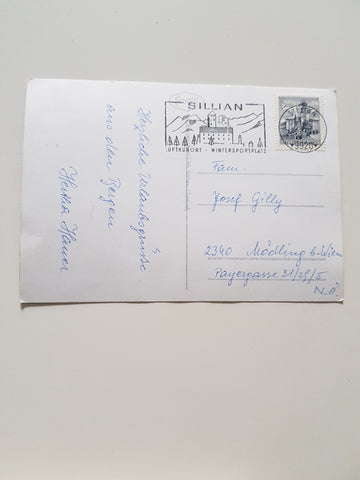 SILLIAN
LUFTKURORT - WINTERSPORTPLATZ
*9920*
Herzliche Urlaubsgrüsse
aus den Bergen
Fam.
Josef Gilly
2340 Mödling b. Wien
Payergasse 31/29/5
N.Ö.